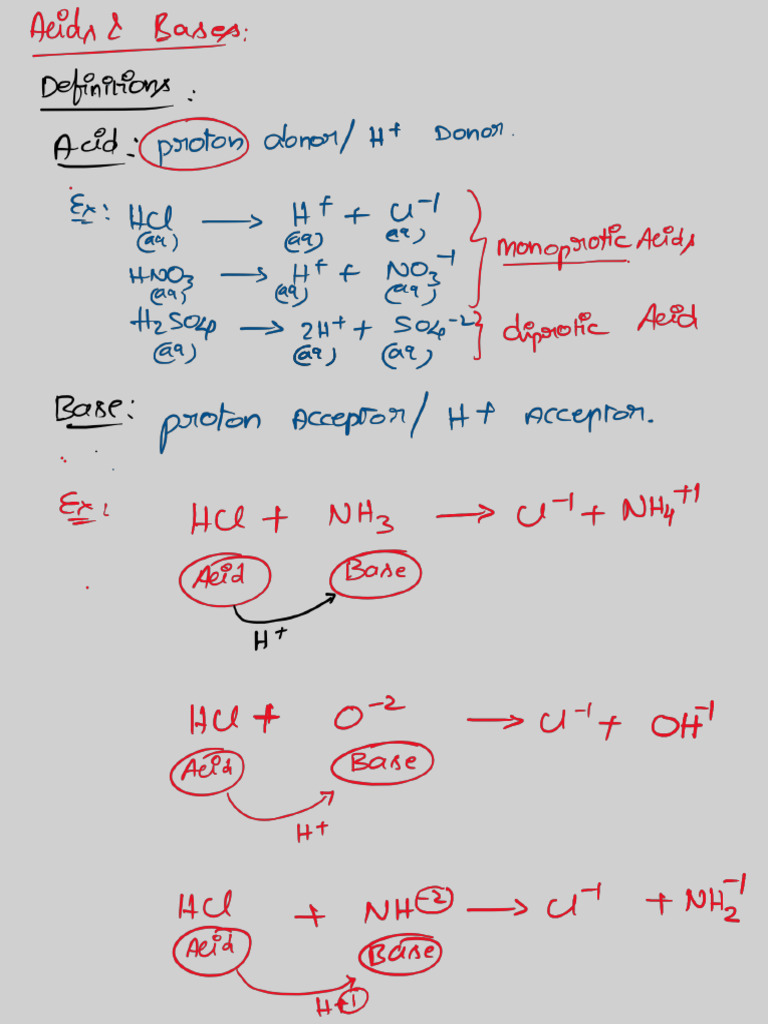 Acids & Bases:
Definitions:
Acid: proton donor/ H⁺ Donor.
Ex: HCl ⟶ H⁺ + Cl⁻¹
(aq) (aq) (aq)
HNO₃ ⟶ H⁺ + NO₃⁻¹
(aq) (aq) (aq)
monoprotic Acids
H₂SO₄ ⟶ 2H⁺ + SO₄⁻²
(aq) (aq) (aq)
diprotic Acid
Base: proton Acceptor/ H⁺ Acceptor.
Ex: HCl + NH₃ ⟶ Cl⁻¹ + NH₄⁺¹
Acid Base
H⁺
HCl + O⁻² ⟶ Cl⁻¹ + OH⁻¹
Acid Base
H⁺
HCl + NH⁻² ⟶ Cl⁻¹ + NH₂⁻¹
Acid Base
H⁺¹